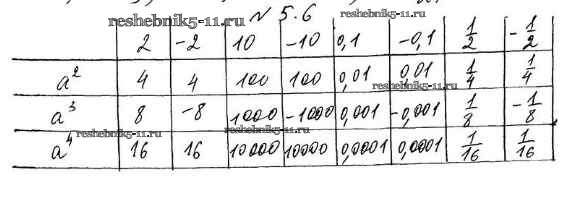 № 5.6
reshebnik5-11.ru reshebnik5-11.ru
2 -2 10 -10 0,1 -0,1 1/2 -1/2
a² 4 4 100 100 0,01 0,01 1/4 1/4
a³ 8 -8 1000 -1000 0,001 -0,001 1/8 -1/8
reshebnik5-11.ru reshebnik5-11.ru reshebnik5-11.ru
a⁴ 16 16 10000 10000 0,0001 0,0001 1/16 1/16